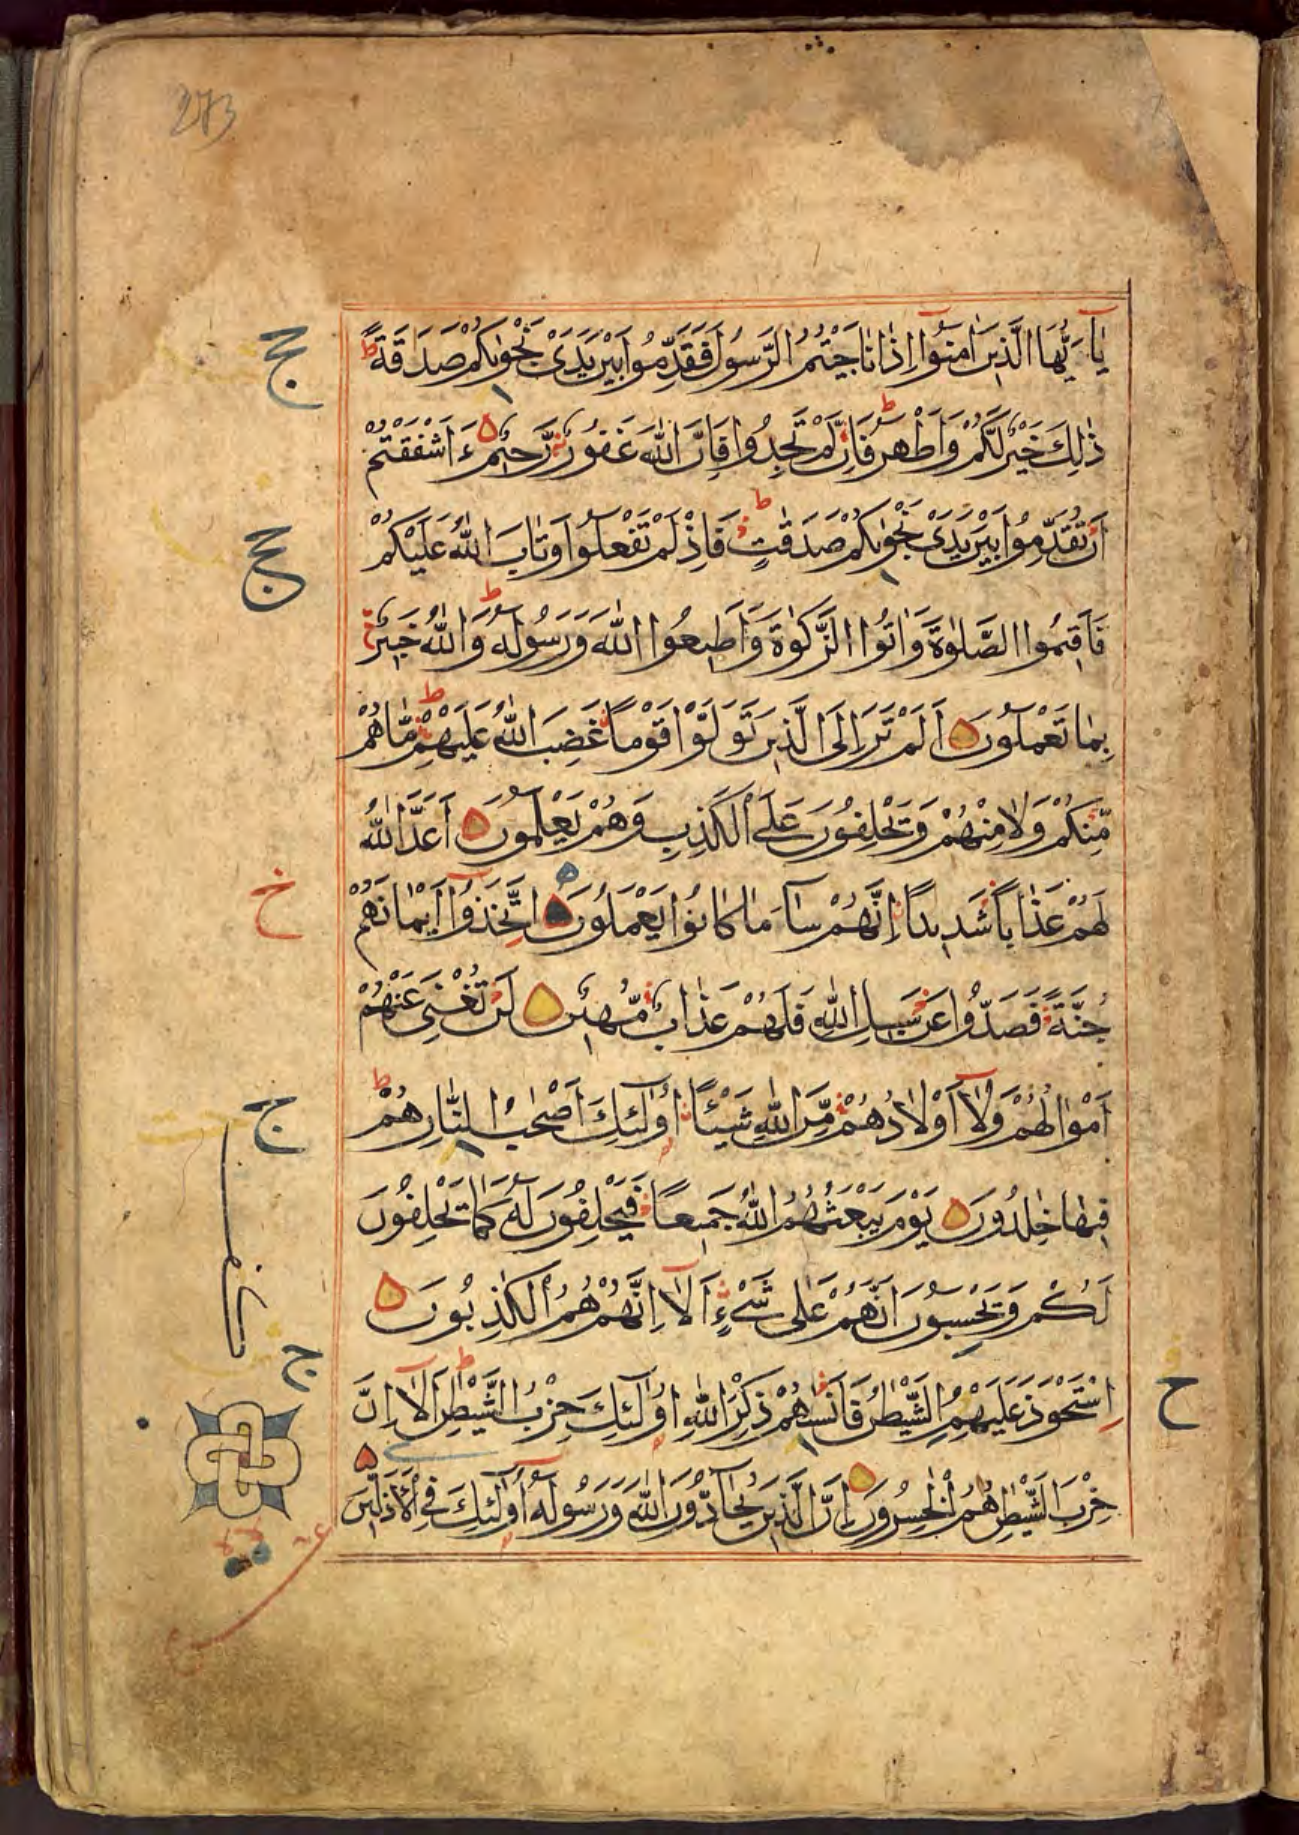 273
يٰٓاَيُّهَا الَّذِيْنَ اٰمَنُوْٓا اِذَا نَاجَيْتُمُ الرَّسُوْلَ فَقَدِّمُوْا بَيْنَ يَدَيْ نَجْوٰىكُمْ صَدَقَةً ط
ذٰلِكَ خَيْرٌ لَّكُمْ وَاَطْهَرُ ط فَاِنْ لَّمْ تَجِدُوْا فَاِنَّ اللّٰهَ غَفُوْرٌ رَّحِيْمٌ ءَاَشْفَقْتُمْ
اَنْ تُقَدِّمُوْا بَيْنَ يَدَيْ نَجْوٰىكُمْ صَدَقٰتٍ ط فَاِذْ لَمْ تَفْعَلُوْا وَتَابَ اللّٰهُ عَلَيْكُمْ
فَاَقِيْمُوا الصَّلٰوةَ وَاٰتُوا الزَّكٰوةَ وَاَطِيْعُوا اللّٰهَ وَرَسُوْلَهٗ ط وَاللّٰهُ خَبِيْرٌ
بِمَا تَعْمَلُوْنَ اَلَمْ تَرَ اِلَى الَّذِيْنَ تَوَلَّوْا قَوْمًا غَضِبَ اللّٰهُ عَلَيْهِمْ ط مَّا هُمْ
مِّنْكُمْ وَلَا مِنْهُمْ وَيَحْلِفُوْنَ عَلَى الْكَذِبِ وَهُمْ يَعْلَمُوْنَ اَعَدَّ اللّٰهُ
لَهُمْ عَذَابًا شَدِيْدًا اِنَّهُمْ سَآءَ مَا كَانُوْا يَعْمَلُوْنَ اِتَّخَذُوْٓا اَيْمَانَهُمْ
جُنَّةً فَصَدُّوْا عَنْ سَبِيْلِ اللّٰهِ فَلَهُمْ عَذَابٌ مُّهِيْنٌ لَنْ تُغْنِيَ عَنْهُمْ
اَمْوَالُهُمْ وَلَآ اَوْلَادُهُمْ مِّنَ اللّٰهِ شَيْئًا اُولٰٓئِكَ اَصْحٰبُ النَّارِ ط هُمْ
فِيْهَا خٰلِدُوْنَ يَوْمَ يَبْعَثُهُمُ اللّٰهُ جَمِيْعًا فَيَحْلِفُوْنَ لَهٗ كَمَا يَحْلِفُوْنَ
لَكُمْ وَيَحْسَبُوْنَ اَنَّهُمْ عَلٰى شَيْءٍ اَلَآ اِنَّهُمْ هُمُ الْكٰذِبُوْنَ
اِسْتَحْوَذَ عَلَيْهِمُ الشَّيْطٰنُ فَاَنْسٰهُمْ ذِكْرَ اللّٰهِ اُولٰٓئِكَ حِزْبُ الشَّيْطٰنِ ط اَلَآ اِنَّ
حِزْبَ الشَّيْطٰنِ هُمُ الْخٰسِرُوْنَ اِنَّ الَّذِيْنَ يُحَآدُّوْنَ اللّٰهَ وَرَسُوْلَهٗٓ اُولٰٓئِكَ فِي الْاَذَلِّيْنَ